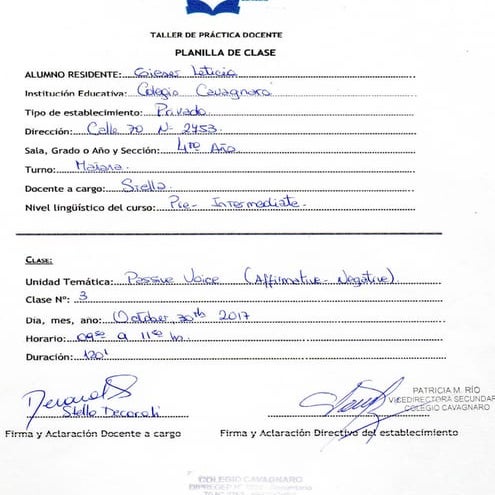 TALLER DE PRÁCTICA DOCENTE
PLANILLA DE CLASE
ALUMNO RESIDENTE: Gieser Leticia
Institución Educativa: Colegio Cavagnaro
Tipo de establecimiento: Privado
Dirección: Calle 70 N- 2453
Sala, Grado o Año y Sección: 4to Año
Turno: Mañana
Docente a cargo: Stella
Nivel lingüístico del curso: Pre- Intermediate
CLASE:
Unidad Temática: Passive Voice (Affirmative- Negative)
Clase N°: 3
Día, mes, año: October 30th 2017
Horario: 09oo a 11oo hs
Duración: 120'
Stella
PATRICIA M. RÍO
VICEDIRECTORA SECUNDAR
COLEGIO CAVAGNARO
Firma y Aclaración Docente a cargo
Firma y Aclaración Directivo del establecimiento
COLEGIO CAVAGNARO